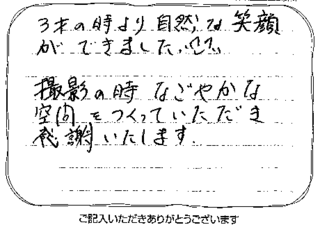 3才の時より自然な笑顔
ができました。
撮影の時なごやかな
空間をつくっていただき
感謝いたします。
ご記入いただきありがとうございます